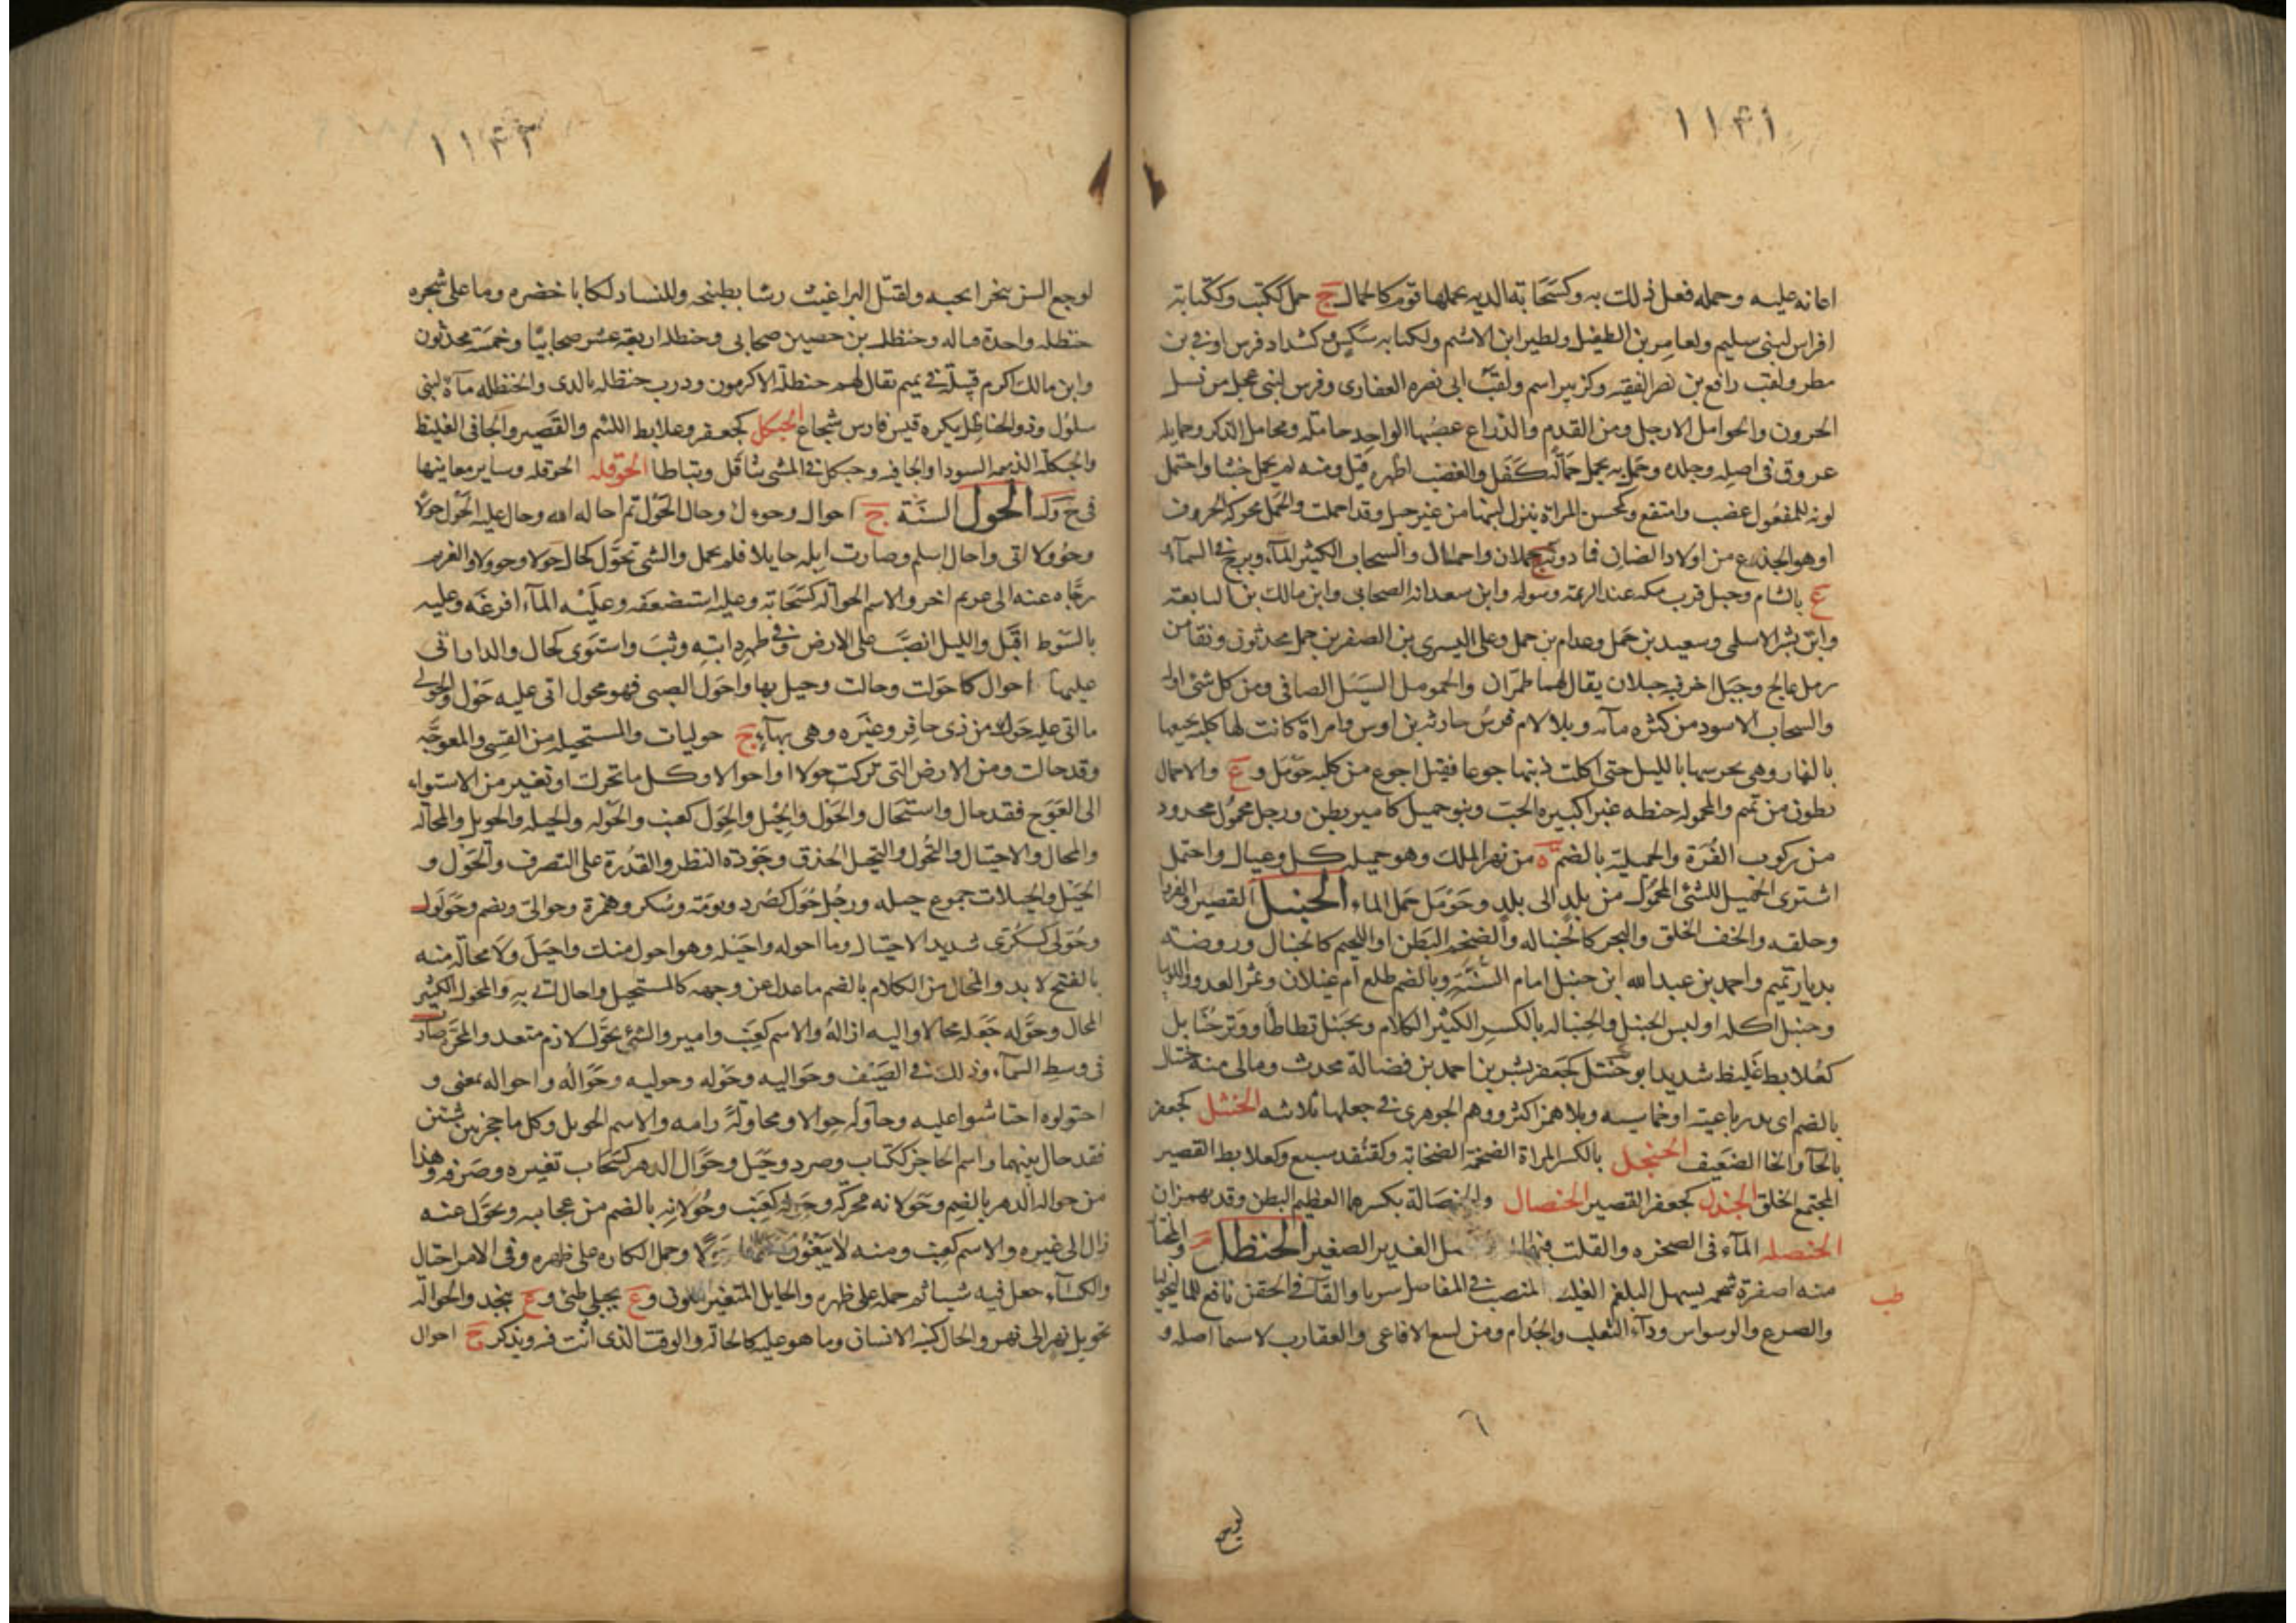 ١١٤١
اعانه عليه وحمله فعل ذلك به وكسحابة الدية يحملها قوم كالحمال ج حمل ككتب وككتابة
افراس لبنى سليم ولعامر بن الطفيل ولطير ابن الاشيم ولكنابه سكين وكشداد فرس اوفى بن
مطر ولقب رافع بن نصر الفقيه وكزبير اسم ولقب ابى نصره الغفارى وفرس لبنى عجل من نسل
الحرون والحوامل الارجل ومن القدم والذراع عصبها الواحد حامله ومحامل الذكر وحمايله
عروق فى اصله وجلده وحمل به يحمل حمالة كفل والغضب اظهره قيل ومنه لم يحمل خبثا واحتمل
لونه للمفعول غضب وامتقع وكمحسن المراة ينزل لبنها من غير حبل وقد احملت والحمل محركة الخروف
او هو الجذع من اولاد الضان فما دونه ج حملان واحمال والسحاب الكثير الماء وبرج فى السماء
ع بالشام وجبل قرب مكه عند الزيمة وسوله وابن سعدانه الصحابى وابن مالك بن النابغه
وابن بشر الاسلمى وسعيد بن حمل وعدام بن حمل وعلى اليسرى بن الصقر بن حمل محدثون ونقا من
رمل عالج وجبل اخر فيه جبلان يقال لهما طمران والحومل السيل الصافى ومن كل شئ اوله
والسحاب الاسود من كثرة مآئه وبلا لام فرس حارثه بن اوس وامراة كانت لها كلبه يجيعها
بالنهار وهى تحرسها بالليل حتى اكلت ذنبها جوعا فقيل اجوع من كلبه حومل و ع والاحمال
بطون من تميم والمحموله حنطه غبرا كبيره الحب وبنو حميل كامير بطن ورجل محمول مجدود
من ركوب الفرة والحميلية بالضم ة من نهر الملك وهو حميله كل وعيال واحتمل
اشترى الحميل للشئ المحمول من بلد الى بلد وحومل حمل الماء الحنبل القصير والفرو
وخلقه والخف الخلق والبحر كالحنباله والضخم البطن او اللحيم كالحنبال وروضة
بديار تميم واحمد بن عبد الله ابن حنبل امام السنة وبالضم طلع ام غيلان وثمر الغدو واللوبيا
وحنبل اكله او لبس الحنبل والحنباله بالكسر الكثير الكلام وتحنبل تطاطا ووتر حنابل
كعلابط غليظ شديد ابو حنتل كجعفر بشر بن احمد بن فضالة محدث ومالى منه حنتال
بالضم اى بد رباعية او خماسيه وبلا همز اكثر ووهم الجوهرى فى جعلها ثلاثيه الحنثل كجعفر
بالحا والخا الضعيف الحنجل بالكسر المراة الضخمة الصخابة وكقنفد سبع وكعلابط القصير
المجتمع الخلق الحندل كجعفر القصير الحنصال والحنصالة بكسرهما العظيم البطن وقد يهمزان
الحنصله المآء فى الصخره والقلت فيها الغدير الصغير الحنظل
طب
منه اصفره شحمه يسهل البلغم الغليظ المنصب فى المفاصل شربا والقآء فى الحقن نافع للماليخوليا
والصرع والوسواس ودآء الثعلب والجذام ومن لسع الافاعى والعقارب لا سيما اصله و
٦
لوجع
١١٤٢
لوجع السن تبخرا بحبه ولقتل البراغيث رشا بطبيخه وللنساد لكا باخضره وما على شجره
حنظله واحدة قتاله وحنظله بن حصين صحابى وحنظله اربعة عشر صحابيا وخمسة محدثون
وابن مالك اكرم قبيلة فى تميم يقال لهم حنظلة الاكرمون ودرب حنظله بالرى والحنظله مآءة لبنى
سلول وذو الحناظل نكره قيس فارس شجاع الحنكل كجعفر وعلابط اللئيم والقصير والجافى الغليظ
والحنكلة الذميمه السودا والجافيه وحنكل فى المشى تثاقل وتباطا الحوقله الحوقله وساير معاينها
فى ح و ك الحول السنة ج احوال وحوول وحال الحول تم احاله الله وحال عليه الحول حولا
وحوولا اتى واحال اسلم وصارت ابله حايلا فلم يحمل والشئ تحول كحال حولا وحوولا والغريم
زجاه عنه الى غريم اخر والاسم الحوالة كسحابة وعليه استضعفه وعليه المآء افرغه وعليه
بالسوط اقبل والليل انصب على الارض وفى ظهر دابته وثب واستوى كحال والدار اتى
عليها احوال كاحولت وحالت وحيل بها واحول الصبى فهو محول اتى عليه حول والحولى
ما اتى عليه حول من ذى حافر وغيره وهى بهآء ج حوليات والمستحيله من القسى والمعوجة
وقد حالت ومن الارض التى تركت حولا او احوالا وكل ما تحرك او تغير من الاستواء
الى العوج فقد حال واستحال والحول والحيل والحول كعنب والحوله والحيله والحويل والمحاله
والمحال والاحتيال والتحول والتحيل الحذق وجودة النظر والقدرة على التصرف والحول و
الحيل والحيلات جموع حيله ورجل حول كصرد وبومة وسكر وهمزة وحوالى ويضم وحولول
وحولى كسكرى شديد الاحتيال وما احوله واحيله وهو احول منك واحيل ولا محالة منه
بالفتح لا بد والمحال من الكلام بالضم ما عدل عن وجهه كالمستحيل واحال اتى به والمحوال الكثير
المحال وحوله جعله محالا واليه ازاله والاسم كعنب وامير والشئ تحول لازم متعد والمجرة صارت
فى وسط السماء وذلك فى الصيف وحواليه وحوله وحوليه وحواله واحواله بمعنى و
احتولوه احتاشوا عليه وحاوله حوالا ومحاولة رامه والاسم الحويل وكل ما حجز بين شيئين
فقد حال بينهما واسم الحاجز ككتاب وصرد وجبل وحوال الدهر كسحاب تغيره وصرفه وهذا
من حولة الدهر بالضم وحولانه محركة وحوله كعنب وحولانه بالضم من عجايبه وتحول عنه
زال الى غيره والاسم كعنب ومنه لا يبغون عنها حولا وحمل الكاره على ظهره وفى الامر احتال
والكسآء جعل فيه شيئا ثم حمله على ظهره والحايل المتغير اللون و ع بجبلى طئ و ع بنجد والحوالة
تحويل نهر الى نهر والحال كينة الانسان وما هو عليه كالحالة والوقت الذى انت فيه ويذكر ج احوال